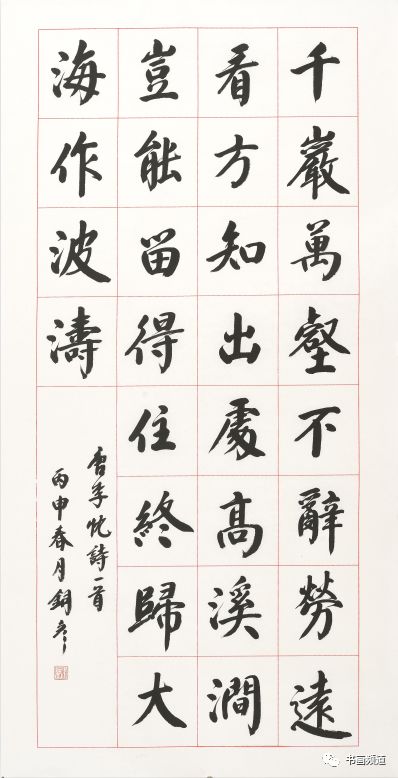 千巖萬壑不辭勞遠
看方知出處高溪澗
豈能留得住終歸大
海作波濤
唐李忱詩一首
丙申春月銅彥
书画频道